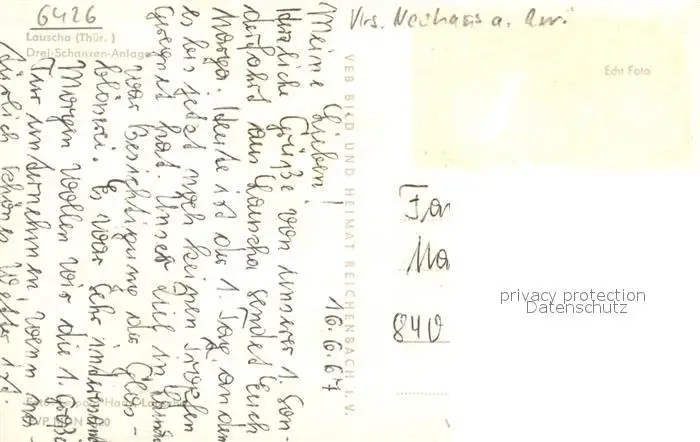 6426
Lauscha (Thür.)
Drei-Schanzen-Anlage
Krs. Neuhaus a.
Echt Foto
VEB BILD UND HEIMAT REICHENBACH I. V.
16.6.67
Meine Lieben!
Herzliche Grüße von unserer 1. Son-
derfahrt aus Lauscha sendet Euch
Margo. Heute ist der 1. Tag an dem
es bis jetzt noch keinen Tropfen
geregnet hat. Unser Ziel in Lauscha
war Besichtigung der Glas-
bläserei. Es war sehr interessant
Morgen wollen wir die 1. große
Tur unternehmen, wenn na-
türlich schönes Wetter ist.
Fa
Ma
840
privacy protection
Datenschutz